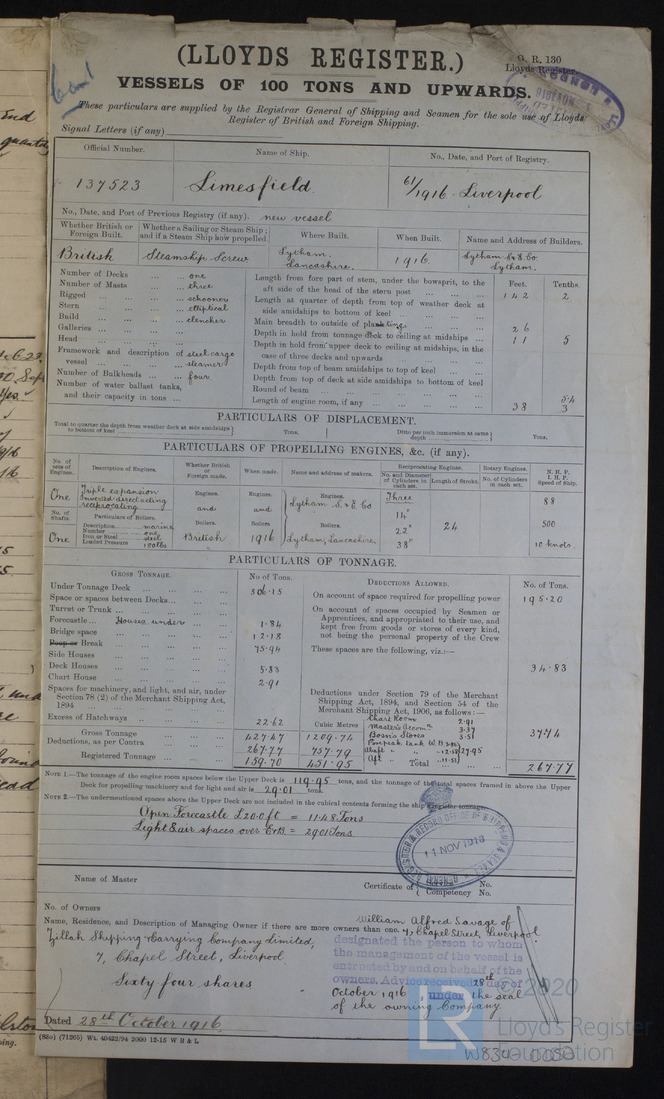 (LLOYDS REGISTER.)
G. R. 130
Lloyds Register.
VESSELS OF 100 TONS AND UPWARDS.
These particulars are supplied by the Registrar General of Shipping and Seamen for the sole use of Lloyds
Register of British and Foreign Shipping.
Signal Letters (if any)
Official Number. Name of Ship. No., Date, and Port of Registry.
137523 Limesfield. 61/1916 Liverpool
No., Date, and Port of Previous Registry (if any). new vessel
Whether British or Foreign Built. Whether a Sailing or Steam Ship; and if a Steam Ship how propelled. Where Built. When Built. Name and Address of Builders.
British Steamship Screw Lytham. Lancashire. 1916. Lytham S & E Co Lytham.
Number of Decks one
Number of Masts three
Rigged schooner
Stern elliptical
Build clencher
Galleries
Head
Framework and description of vessel steel cargo steamer
Number of Bulkheads four
Number of water ballast tanks, and their capacity in tons
Feet. Tenths.
Length from fore part of stem, under the bowsprit, to the aft side of the head of the stern post 142 2
Length at quarter of depth from top of weather deck at side amidships to bottom of keel
Main breadth to outside of plating 26
Depth in hold from tonnage deck to ceiling at midships 11 5
Depth in hold from upper deck to ceiling at midships, in the case of three decks and upwards
Depth from top of beam amidships to top of keel
Depth from top of deck at side amidships to bottom of keel
Round of beam
Length of engine room, if any 38 3
PARTICULARS OF DISPLACEMENT.
Total to quarter the depth from weather deck at side amidships to bottom of keel Tons. Ditto per inch immersion at same depth Tons.
PARTICULARS OF PROPELLING ENGINES, &c. (if any).
No. of sets of Engines. Description of Engines. Whether British or Foreign made. When made. Name and address of makers. Reciprocating Engines. Rotary Engines. N. H. P. I. H. P. Speed of Ship.
No. and Diameter of Cylinders in each set. Length of Stroke. No. of Cylinders in each set.
One Triple expansion Inverted direct acting reciprocating Engines. Engines. Engines. Three 88
and and Lytham S. & E. Co 14"
No. of Shafts. Particulars of Boilers. Boilers. Boilers Boilers. 22" 24 500
One Description marine Number one Iron or Steel steel Loaded Pressure British 1916 Lytham, Lancashire. 38" 10 knots.
PARTICULARS OF TONNAGE.
GROSS TONNAGE. No of Tons. DEDUCTIONS ALLOWED. No. of Tons.
Under Tonnage Deck 306.15
Space or spaces between Decks
Turret or Trunk
Forecastle Houses under 1.84
Bridge space 12.18
Poop or Break 75.94
Side Houses
Deck Houses 5.83
Chart House 2.91
Spaces for machinery, and light, and air, under Section 78 (2) of the Merchant Shipping Act, 1894
Excess of Hatchways 22.62
Cubic Metres
Gross Tonnage 427.47 1209.74
Deductions, as per Contra 267.77 757.79
Registered Tonnage 159.70 451.95
On account of space required for propelling power 195.20
On account of spaces occupied by Seamen or Apprentices, and appropriated to their use, and kept free from goods or stores of every kind, not being the personal property of the Crew
These spaces are the following, viz.:—
34.83
Deductions under Section 79 of the Merchant Shipping Act, 1894, and Section 54 of the Merchant Shipping Act, 1906, as follows:—
Chart Room 2.91
Master's Accomn 3.37
Bosn's Stores 3.51
37.74
Forepeak tank W.B.
27.95
Aft
Total 267.77
NOTE 1.—The tonnage of the engine room spaces below the Upper Deck is 119.95 tons, and the tonnage of the total spaces framed in above the Upper
Deck for propelling machinery and for light and air is 29.01 tons.
NOTE 2.—The undermentioned spaces above the Upper Deck are not included in the cubical contents forming the ship's register tonnage:
Open Forecastle £20.0 ft = 11.48 Tons
Light & air spaces over E & B = 29.01 Tons
11 NOV 1916
Name of Master Certificate of Service No. Competency No.
No. of Owners
Name, Residence, and Description of Managing Owner if there are more owners than one.
William Alfred Savage of
7, Chapel Street, Liverpool
Zillah Shipping & Carrying Company Limited,
7, Chapel Street, Liverpool
Sixty four shares
designated the person to whom
the management of the vessel is
entrusted by and on behalf of the
owners. Advice received 28th day of
October 1916, under the seal
of the owning Company.
Dated 28th October 1916.
(85o) (71265) Wt. 40422/94 2000 12-15 W B & L
© 2020
Lloyd's Register
Foundation
W834-0050